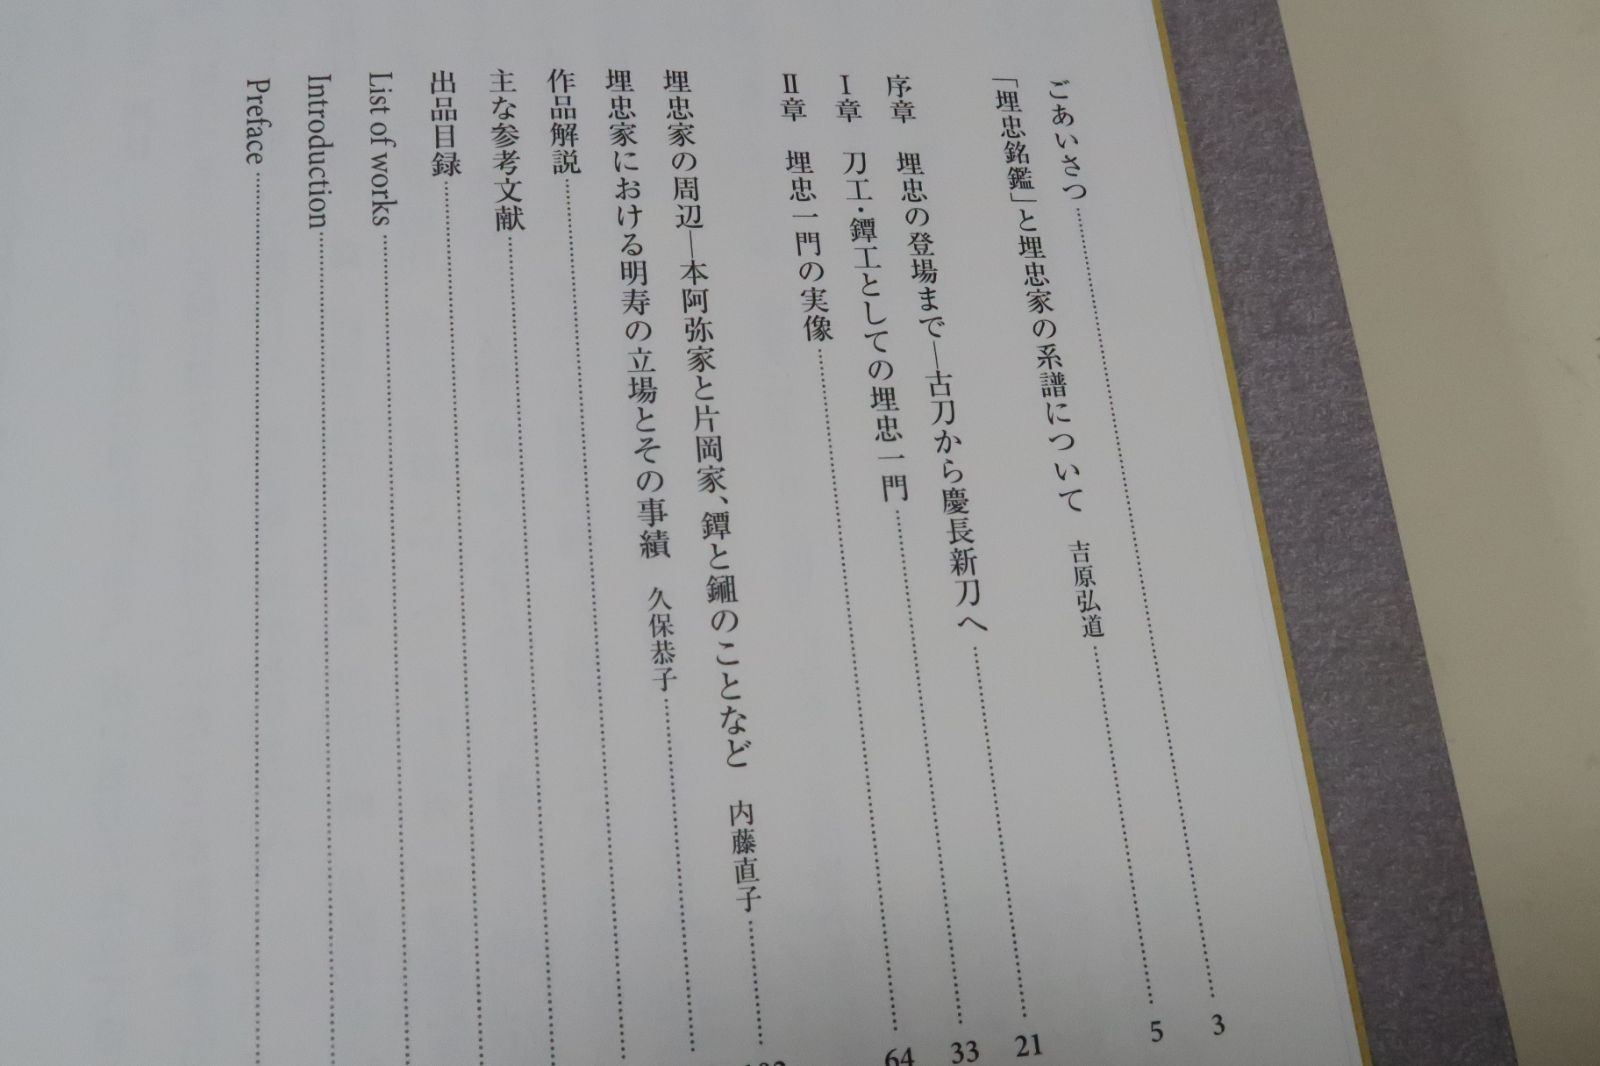 ごあいさつ 3
「埋忠銘鑑」と埋忠家の系譜について 吉原弘道 5
序章 埋忠の登場まで―古刀から慶長新刀へ 21
Ⅰ章 刀工・鐔工としての埋忠一門 33
Ⅱ章 埋忠一門の実像 64
埋忠家の周辺―本阿弥家と片岡家、鐔と鎺のことなど 内藤直子
埋忠家における明寿の立場とその事績 久保恭子
作品解説
主な参考文献
出品目録
List of works
Introduction
Preface